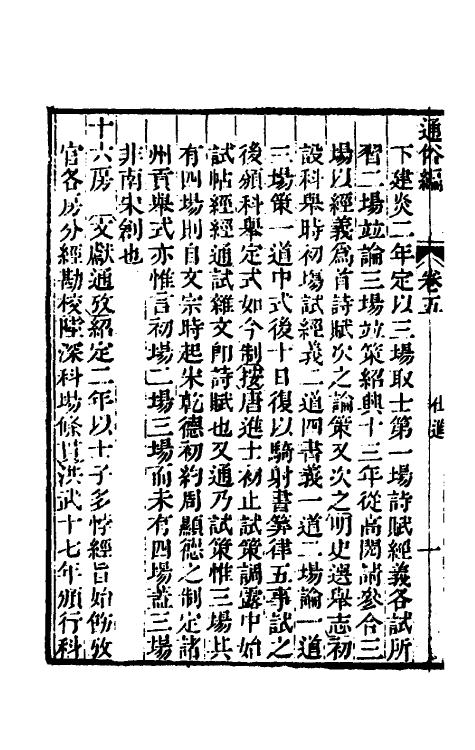 通俗編
卷五
仕進
一
下建炎二年定以三場取士第一場詩賦經義各試所
習二場並論三場並策紹興十三年從高閌請參合三
場以經義爲首詩賦次之論策又次之明史選舉志初
設科舉時初場試經義二道四書義一道二場論一道
三場策一道中式後十日復以騎射書算律五事試之
後頒科舉定式如今制按唐進士初止試策調露中始
試帖經經通試雜文卽詩賦也又通乃試策惟三場共
有四場則自文宗時起宋乾德初約周顯德之制定諸
州貢舉式亦惟言初場二場三場而未有四場蓋三場
非南宋創也
十六房 文獻通攷紹定二年以士子多悖經旨始倣攷
官各房分經勘校陸深科場條貫洪武十七年頒行科